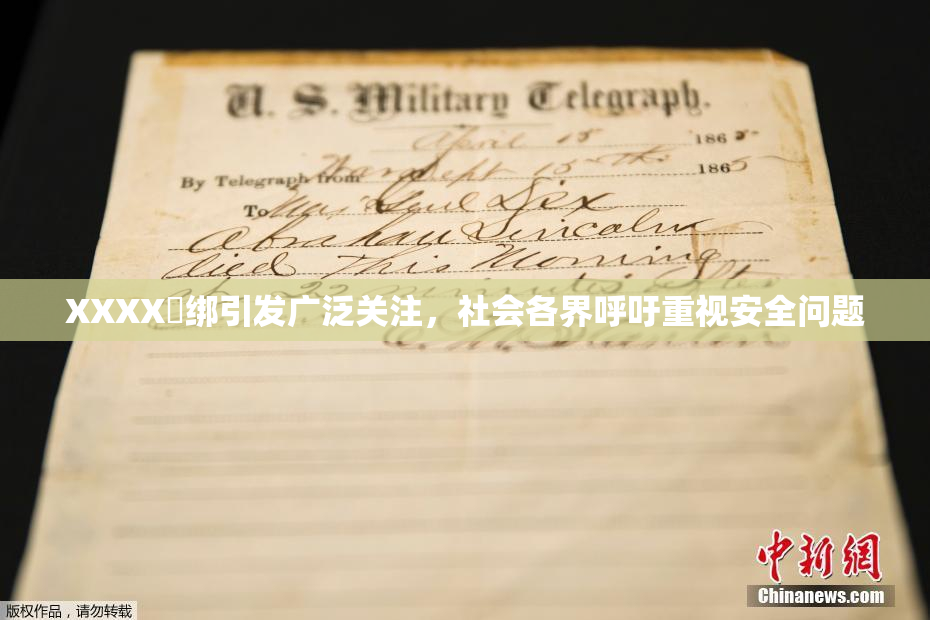 U. S. Military Telegraph.
April 15 1865
By Telegraph from War Dept 15th 1865
To Maj Genl Dix
Abraham Lincoln
died This Morning
at 22 minutes after
XXXX綁引发广泛关注，社会各界呼吁重视安全问题
中新网
Chinanews.com
版权作品，请勿转载